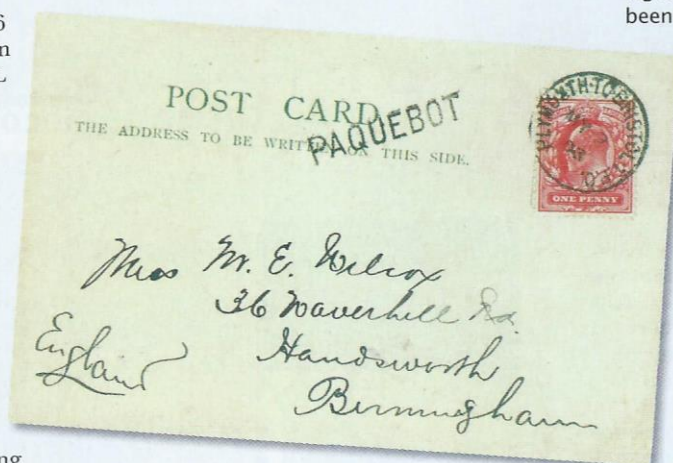 6
m
L
been
POST CARD
PAQUEBOT
THE ADDRESS TO BE WRITTEN ON THIS SIDE.
PLYMOUTH
ONE PENNY
Miss M. E. Wilcox
36 Waverhill Rd.
Handsworth
England
Birmingham
ng